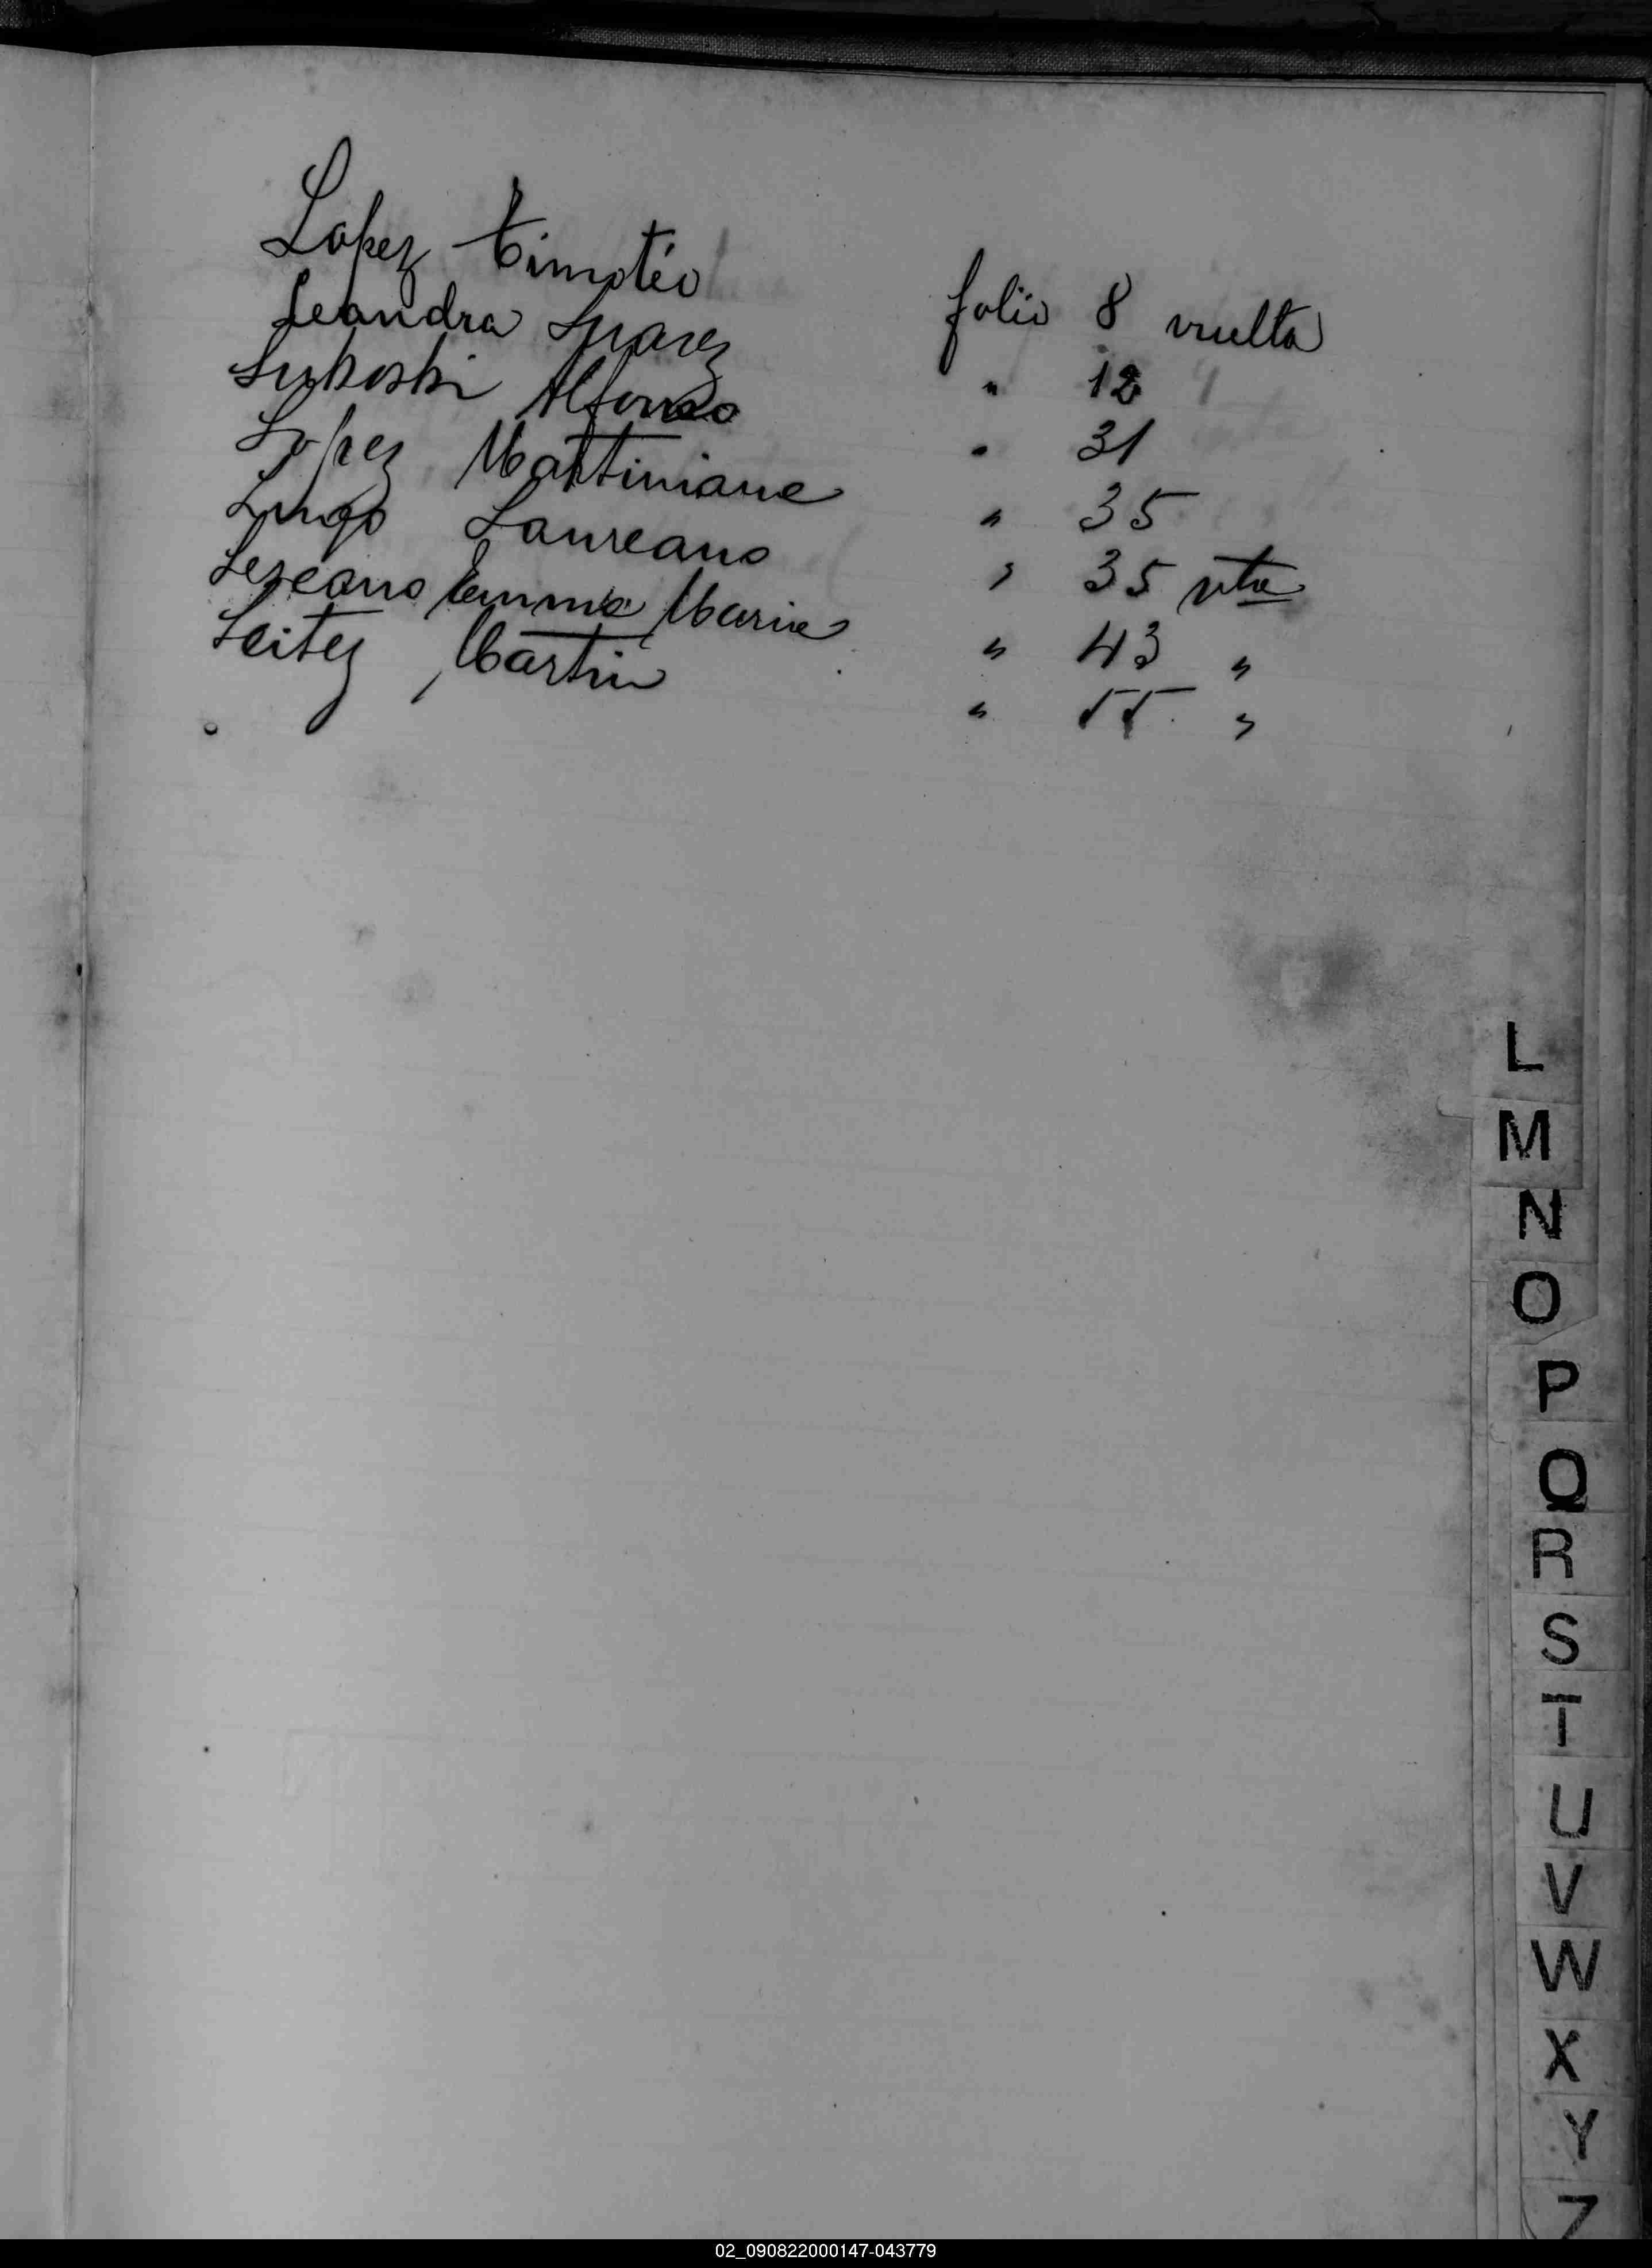 Lopez Timotéo folio 8 vuelta
Leandra Suarez " 12
Lukoski Alfonso " 31
Lopez Martiniane " 35
Lugo Laureano " 35 vta
Lezcano Emma Maria " 43 "
Leites, Martin " 55 "
L
M
N
O
P
Q
R
S
T
U
V
W
X
Y
Z
02_090822000147-043779